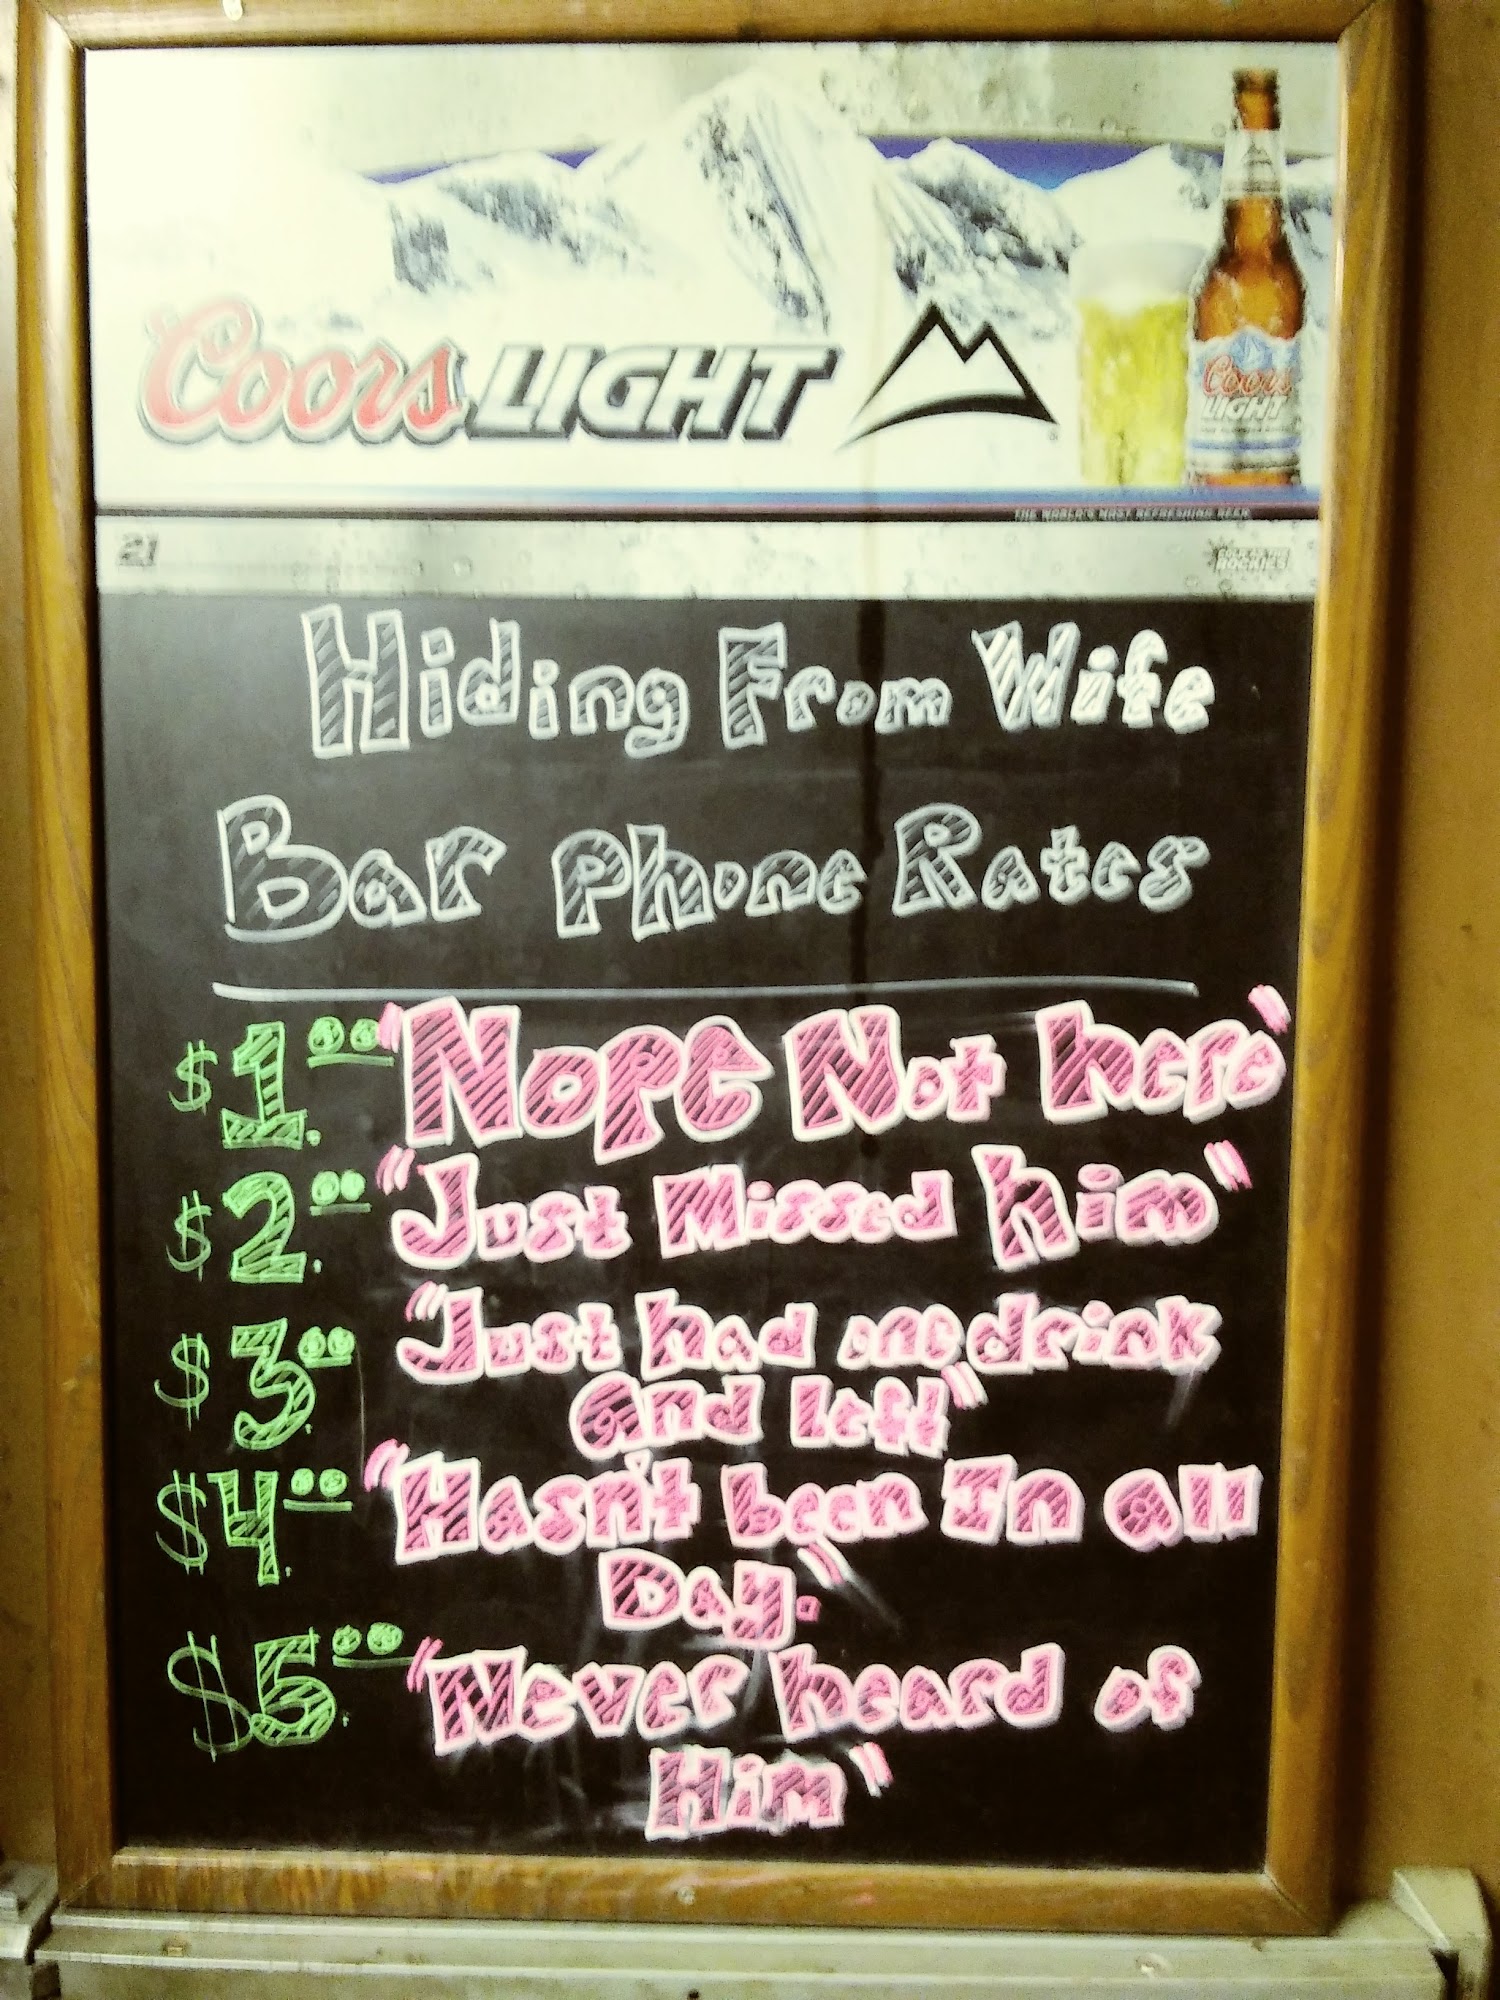 Coors LIGHT
Coors
LIGHT
THE WORLD'S MOST REFRESHING BEER
21
COLD AS THE
ROCKIES
Hiding From Wife
Bar Phone Rates
$1.00 "Nope Not here"
$2.00 "Just Missed him"
$3.00 "Just had one drink
and left"
$4.00 "Hasn't been In all
Day."
$5.00 "Never heard of
Him"